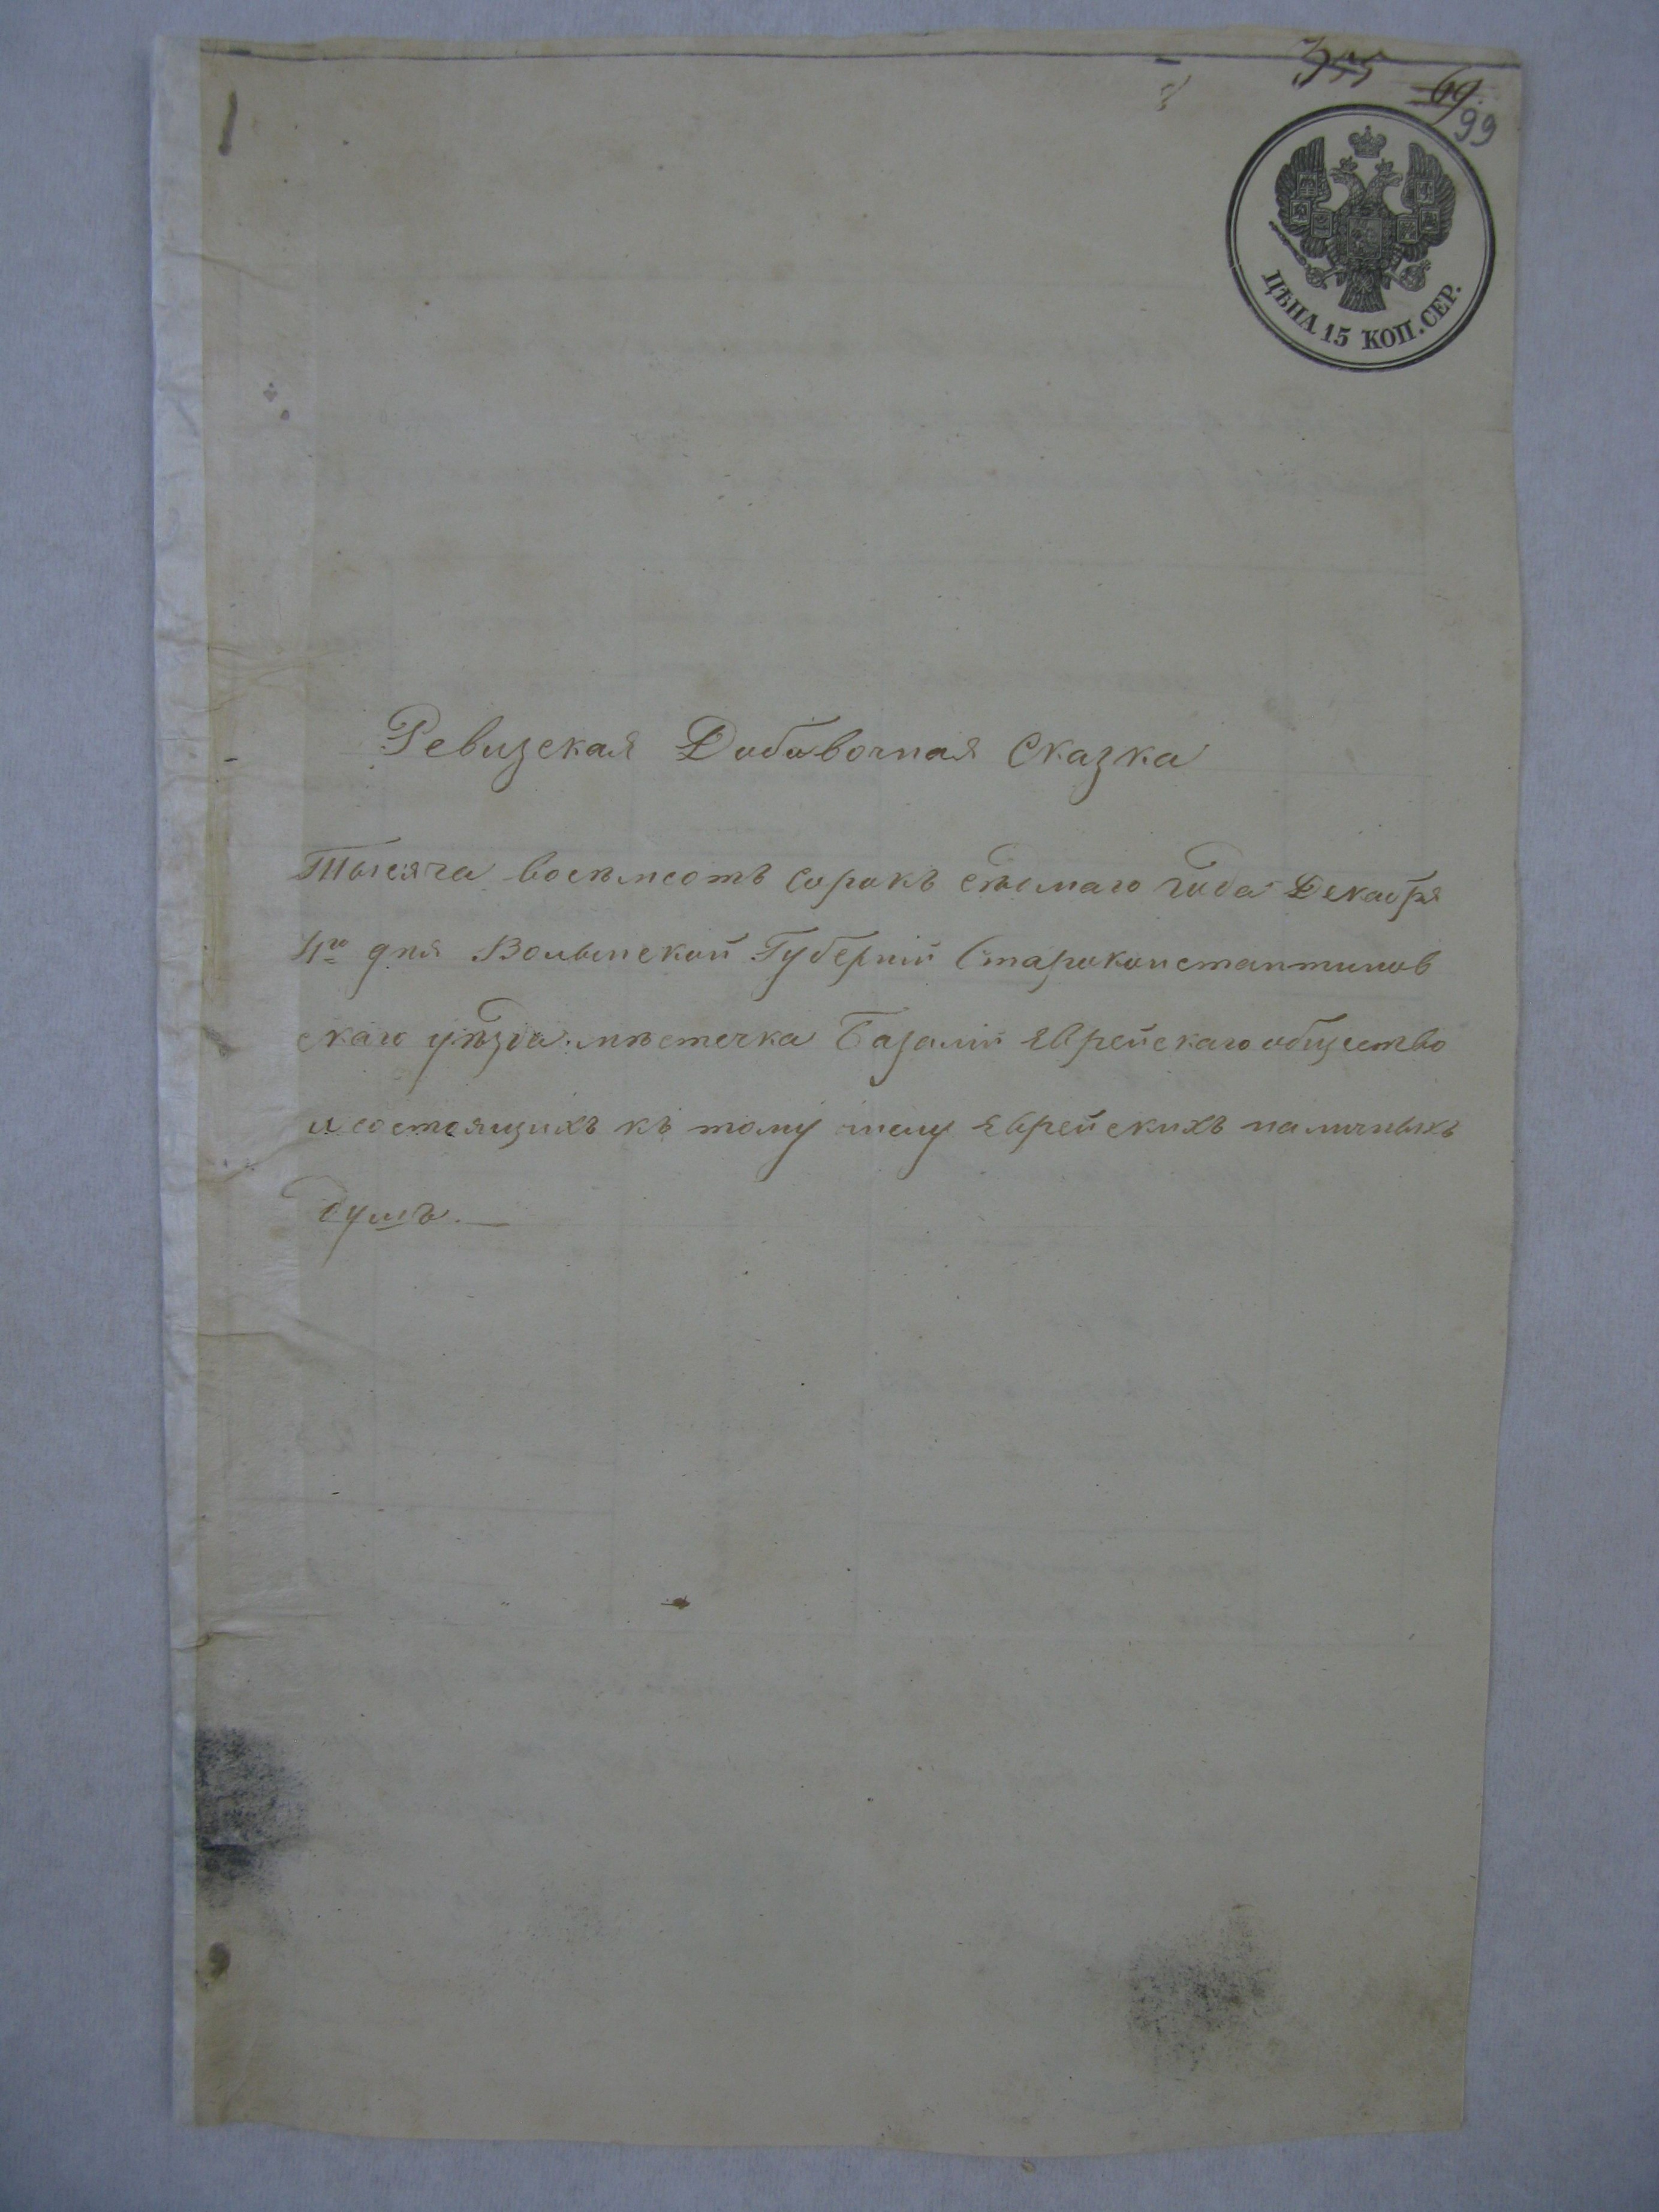 355 69
99
ЦѢНА 15 КОП. СЕР.
Ревизская Добавочная Сказка
Тысяча восемсотъ сорокъ седмаго года Декабря
4го дня Волынской Губерніи Староконстантинов
скаго уѣзда мѣстечка Базаліи Еврейскаго общество
и состоящихъ къ тому числу Еврейскихъ наличныхъ
душъ.